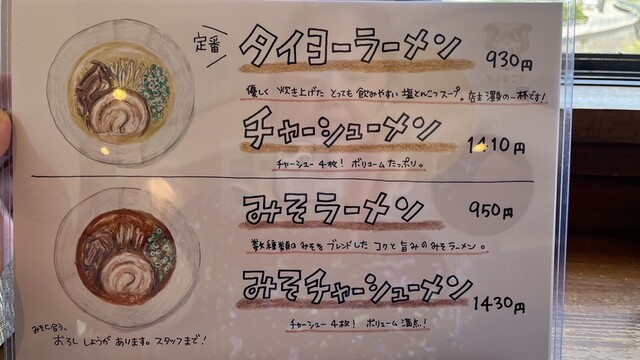 定番
タイヨーラーメン 930円
優しく 炊き上げた とっても 飲みやすい 塩とんこつスープ。店主 渾身の一杯です!
チャーシューメン 1410円
チャーシュー 4枚! ボリュームたっぷり。
みそラーメン 950円
数種類のみそをブレンドした コクと旨みのみそラーメン。
みそチャーシューメン 1430円
チャーシュー 4枚! ボリューム 満点!
みそに合う、
おろし しょうが あります。スタッフまで!